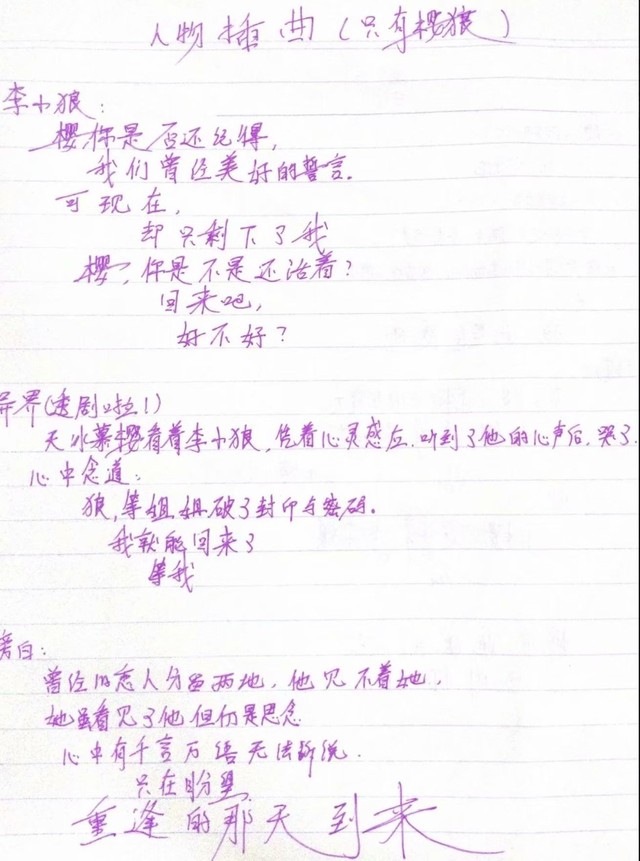 人物插曲(只有樱狼)
李小狼:
樱,你是否还记得,
我们曾经美好的誓言.
可现在,
却只剩下了我
樱,你是不是还活着?
回来吧,
好不好?
异界(透剧啦!)
天水慕樱看着李小狼,凭着心灵感应.听到了他的心声后,哭了.
心中念道:
狼,等姐姐破了封印与密码.
我就能回来了
等我
旁白:
曾经的恋人分留两地,他见不着她,
她虽看见了他但仍是思念
心中有千言万语无法诉说.
只在盼望
重逢的那天到来